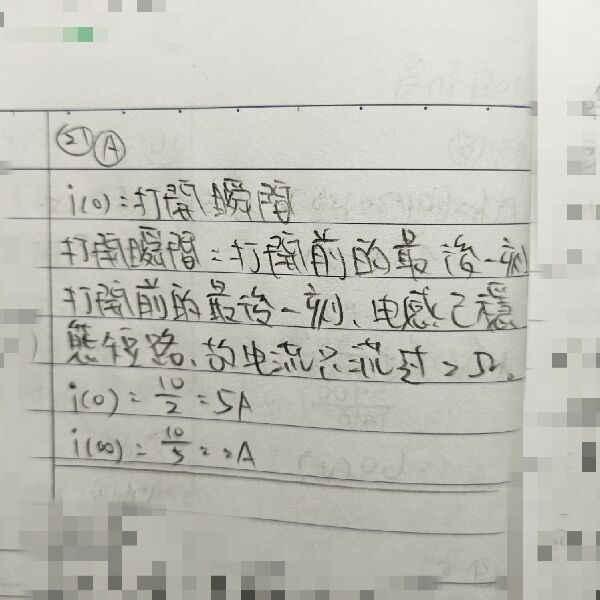 21 A
i(0)=打開瞬間
打開瞬間=打開前的最後一刻
打開前的最後一刻、电感已穩
態短路、故电流只流过2Ω。
i(0)=10/2=5A
i(∞)=10/5=2A